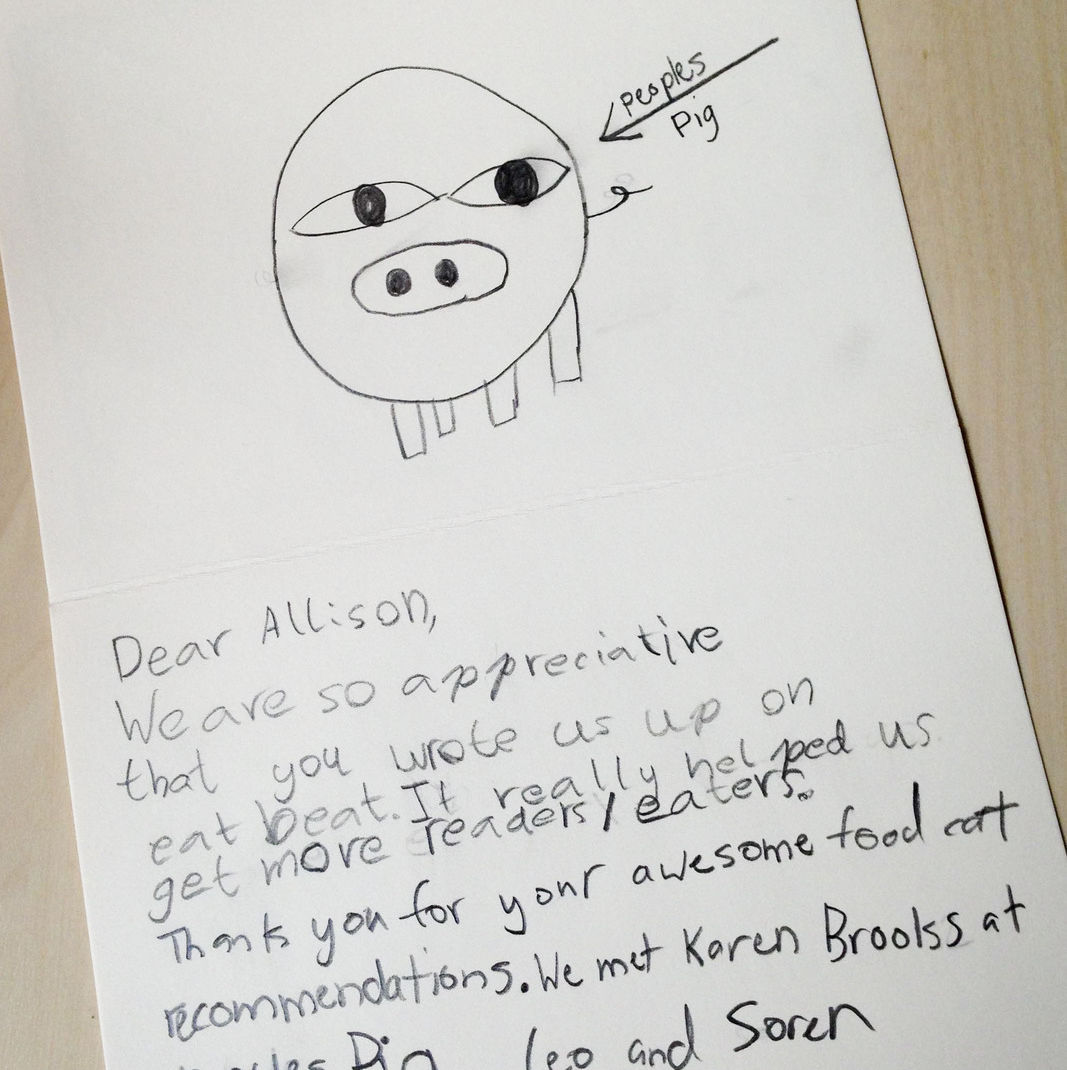 peoples
Pig
Dear Allison,
We are so appreciative
that you wrote us up on
eat beat. It really helped us
get more readers/eaters.
Thanks you for your awesome food cart
recommendations. We met Karen Brookss at
Peoples Pig Leo and Soren